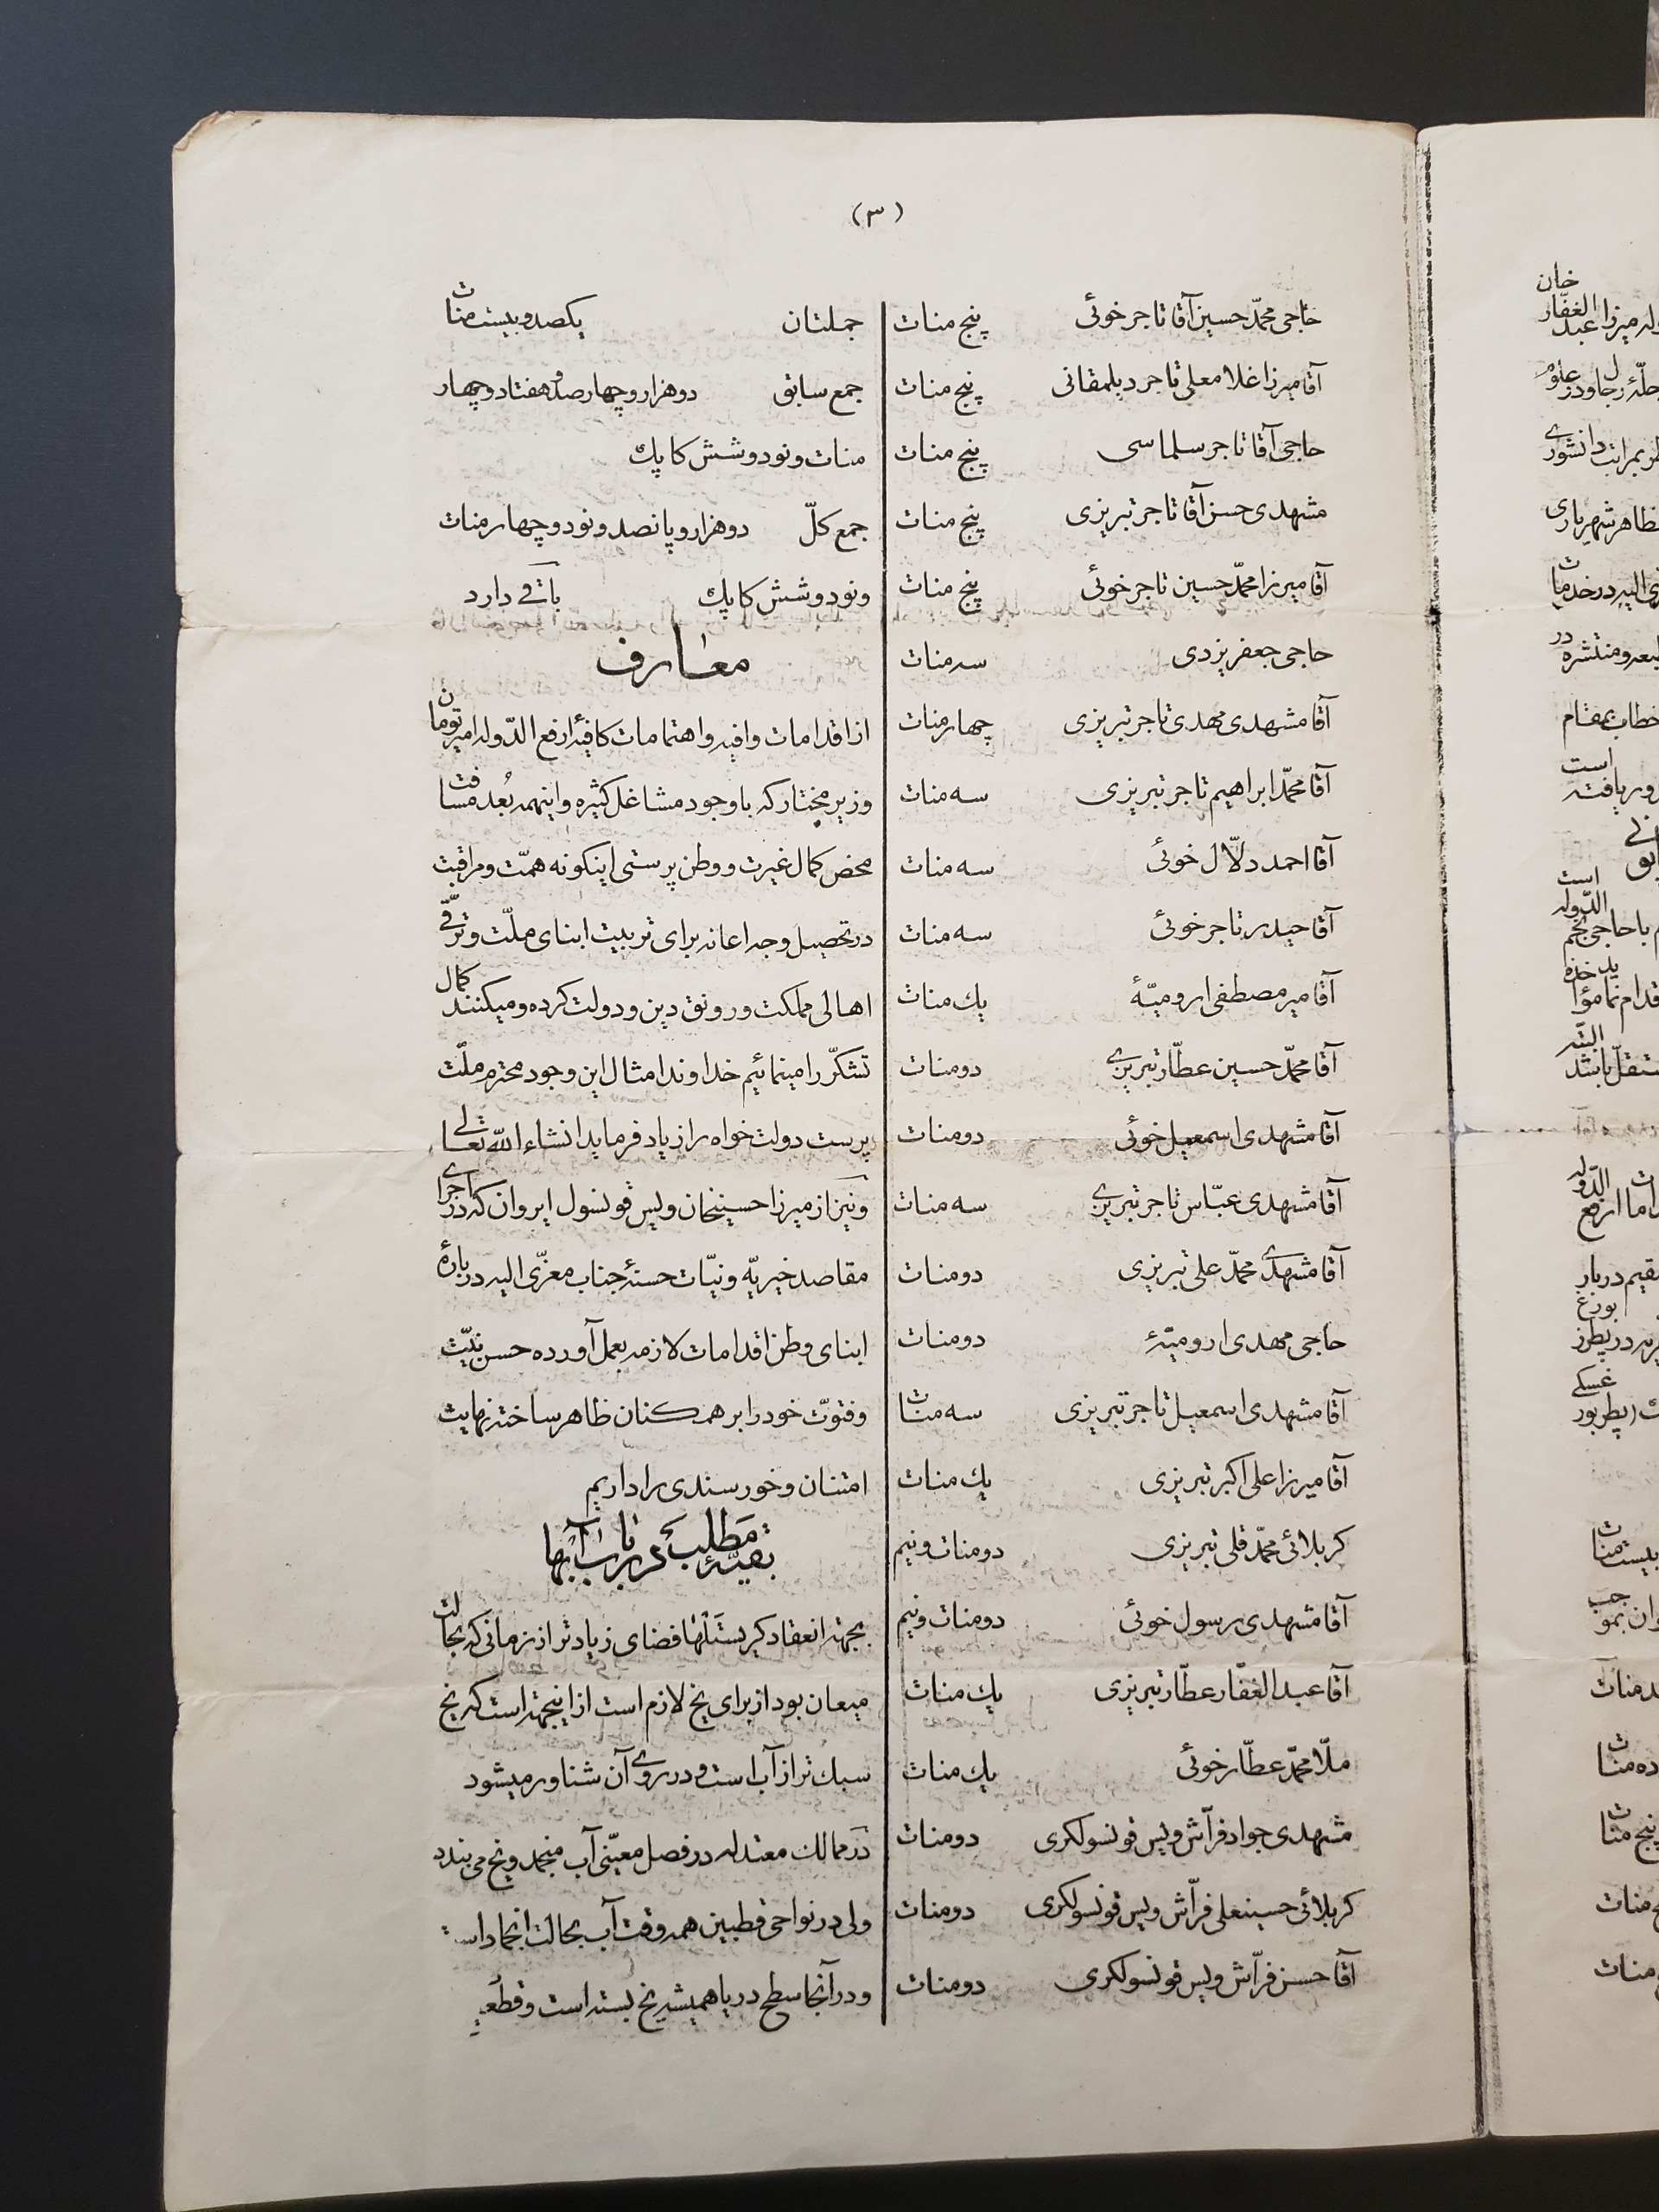 (۳)
حاجی محمّد حسین آقا تاجر خوئی پنج منات
آقا میرزا غلامعلی تاجر دیلمقانی پنج منات
حاجی آقا تاجر سلماسی پنج منات
مشهدی حسن آقا تاجر تبریزی پنج منات
آقا میرزا محمّد حسین تاجر خوئی پنج منات
حاجی جعفر یزدی سه منات
آقا مشهدی مهدی تاجر تبریزی چهار منات
آقا محمّد ابراهیم تاجر تبریزی سه منات
آقا احمد دلّال خوئی سه منات
آقا حیدر تاجر خوئی سه منات
آقا میر مصطفی ارومیّهٔ یك منات
آقا محمّد حسین عطّار تبریزی دو منات
آقا مشهدی اسمعیل خوئی دو منات
آقا مشهدی عبّاس تاجر تبریزی سه منات
آقا مشهدی محمّد علی تبریزی دو منات
حاجی مهدی ارومیّهٔ دو منات
آقا مشهدی اسمعیل تاجر تبریزی سه منات
آقا میرزا علی اکبر تبریزی یك منات
کربلائی محمّد قلی تبریزی دو منات و نیم
آقا مشهدی رسول خوئی دو منات و نیم
آقا عبد الغفّار عطّار تبریزی یك منات
ملّا محمّد عطّار خوئی یك منات
مشهدی جواد فرّاش ویس قونسولکری دو منات
کربلائی حسینعلی فرّاش ویس قونسولکری دو منات
آقا حسن فرّاش ویس قونسولکری دو منات
جملتان یکصد و بیست منات
جمع سابق دو هزار و چهار صد و هفتاد و چهار
منات و نود و شش کاپك
جمع کلّ دو هزار و پانصد و نود و چهار منات
و نود و شش کاپك باقی دارد
معارف
از اقدامات وافیه و اهتمامات کافیهٔ ارفع الدّوله امیر تومان
وزیر مختار که با وجود مشاغل کثیره و اینهمه بُعد مسافت
محض کمال غیرت و وطن پرستی اینکونه همّت و مراقبت
در تحصیل وجه اعانه برای تربیت ابنای ملّت و ترقّی
اهالی مملکت و رونق دین و دولت کرده و میکنند کمال
تشکّر را مینمائیم خداوند امثال این وجود محترم ملّت
پرست دولت خواه را زیاد فرماید انشاء اللّه تعالی
و نیز از میرزا حسینخان ویس قونسول ایروان که در اجرای
مقاصد خیریّه و نیّات حسنهٔ جناب معزّی الیه در بارهٔ
ابنای وطن اقدامات لازمه بعمل آورده حسن نیّت
و فتوّت خود را بر همکنان ظاهر ساخته نهایت
امتنان و خورسندی را داریم
بقیّهٔ مطلب در باب آبها
بجهة انعقاد کریستَلْها فضای زیادتر از زمانی که بحالت
میعان بود از برای یخ لازم است از اینجهة است که یخ
سبك تر از آب است و در روی آن شناور میشود
در ممالك معتدله در فصل معیّنی آب منجمد و یخ می بندد
ولی در نواحی قطبین همه وقت آب بحالت انجماد است
و در آنجا سطح دریا همیشه یخ بسته است و قطعهٔ